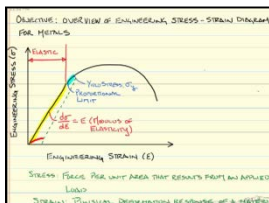 OBJECTIVE: OVERVIEW OF ENGINEERING STRESS-STRAIN DIAGRAM
FOR METALS
ELASTIC
ENGINEERING STRESS (σ)
YIELD STRESS, σy
PROPORTIONAL
LIMIT
dσ/dE = E (MODULUS OF
ELASTICITY)
ENGINEERING STRAIN (E)
STRESS: FORCE PER UNIT AREA THAT RESULTS FROM AN APPLIED
LOAD
STRAIN: PHYSICAL DEFORMATION RESPONSE OF A MATERIAL